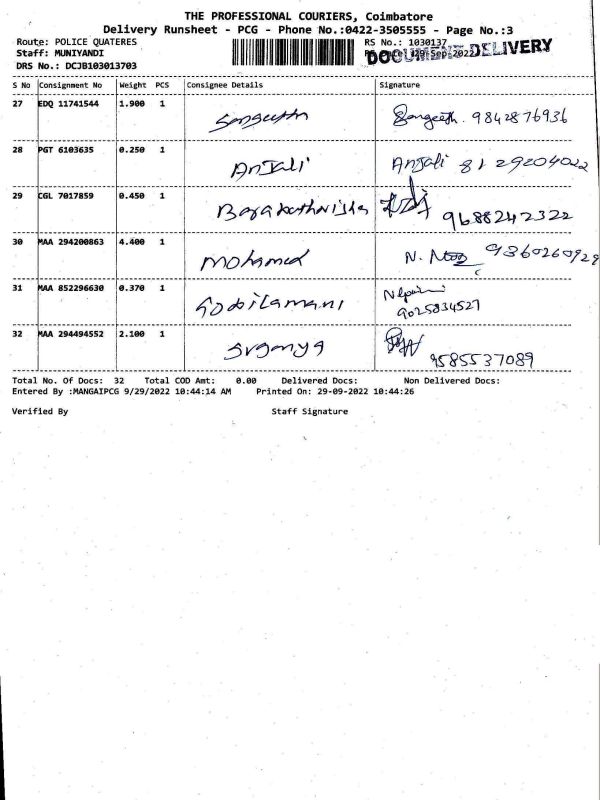 THE PROFESSIONAL COURIERS, Coimbatore
Delivery Runsheet - PCG - Phone No.:0422-3505555 - Page No.:3
Route: POLICE QUATERES
RS No.: 1030137
DOCUMENT DELIVERY
Staff: MUNIYANDI
29-Sep-2022
DRS No.: DCJB103013703
S No Consignment No Weight PCS Consignee Details Signature
27 EDQ 11741544 1.900 1 Sangeetha Sangeeth. 9842876936
28 PGT 6103635 0.250 1 Anjali Anjali 8129204022
29 CGL 7017859 0.450 1 9688242322
30 MAA 294200863 4.400 1 Mohamed N. 9360260929
31 MAA 852296630 0.370 1 Gobilamani
9025834527
32 MAA 294494552 2.100 1 Suganya
9585537089
Total No. Of Docs: 32 Total COD Amt: 0.00 Delivered Docs: Non Delivered Docs:
Entered By :MANGAIPCG 9/29/2022 10:44:14 AM Printed On: 29-09-2022 10:44:26
Verified By Staff Signature